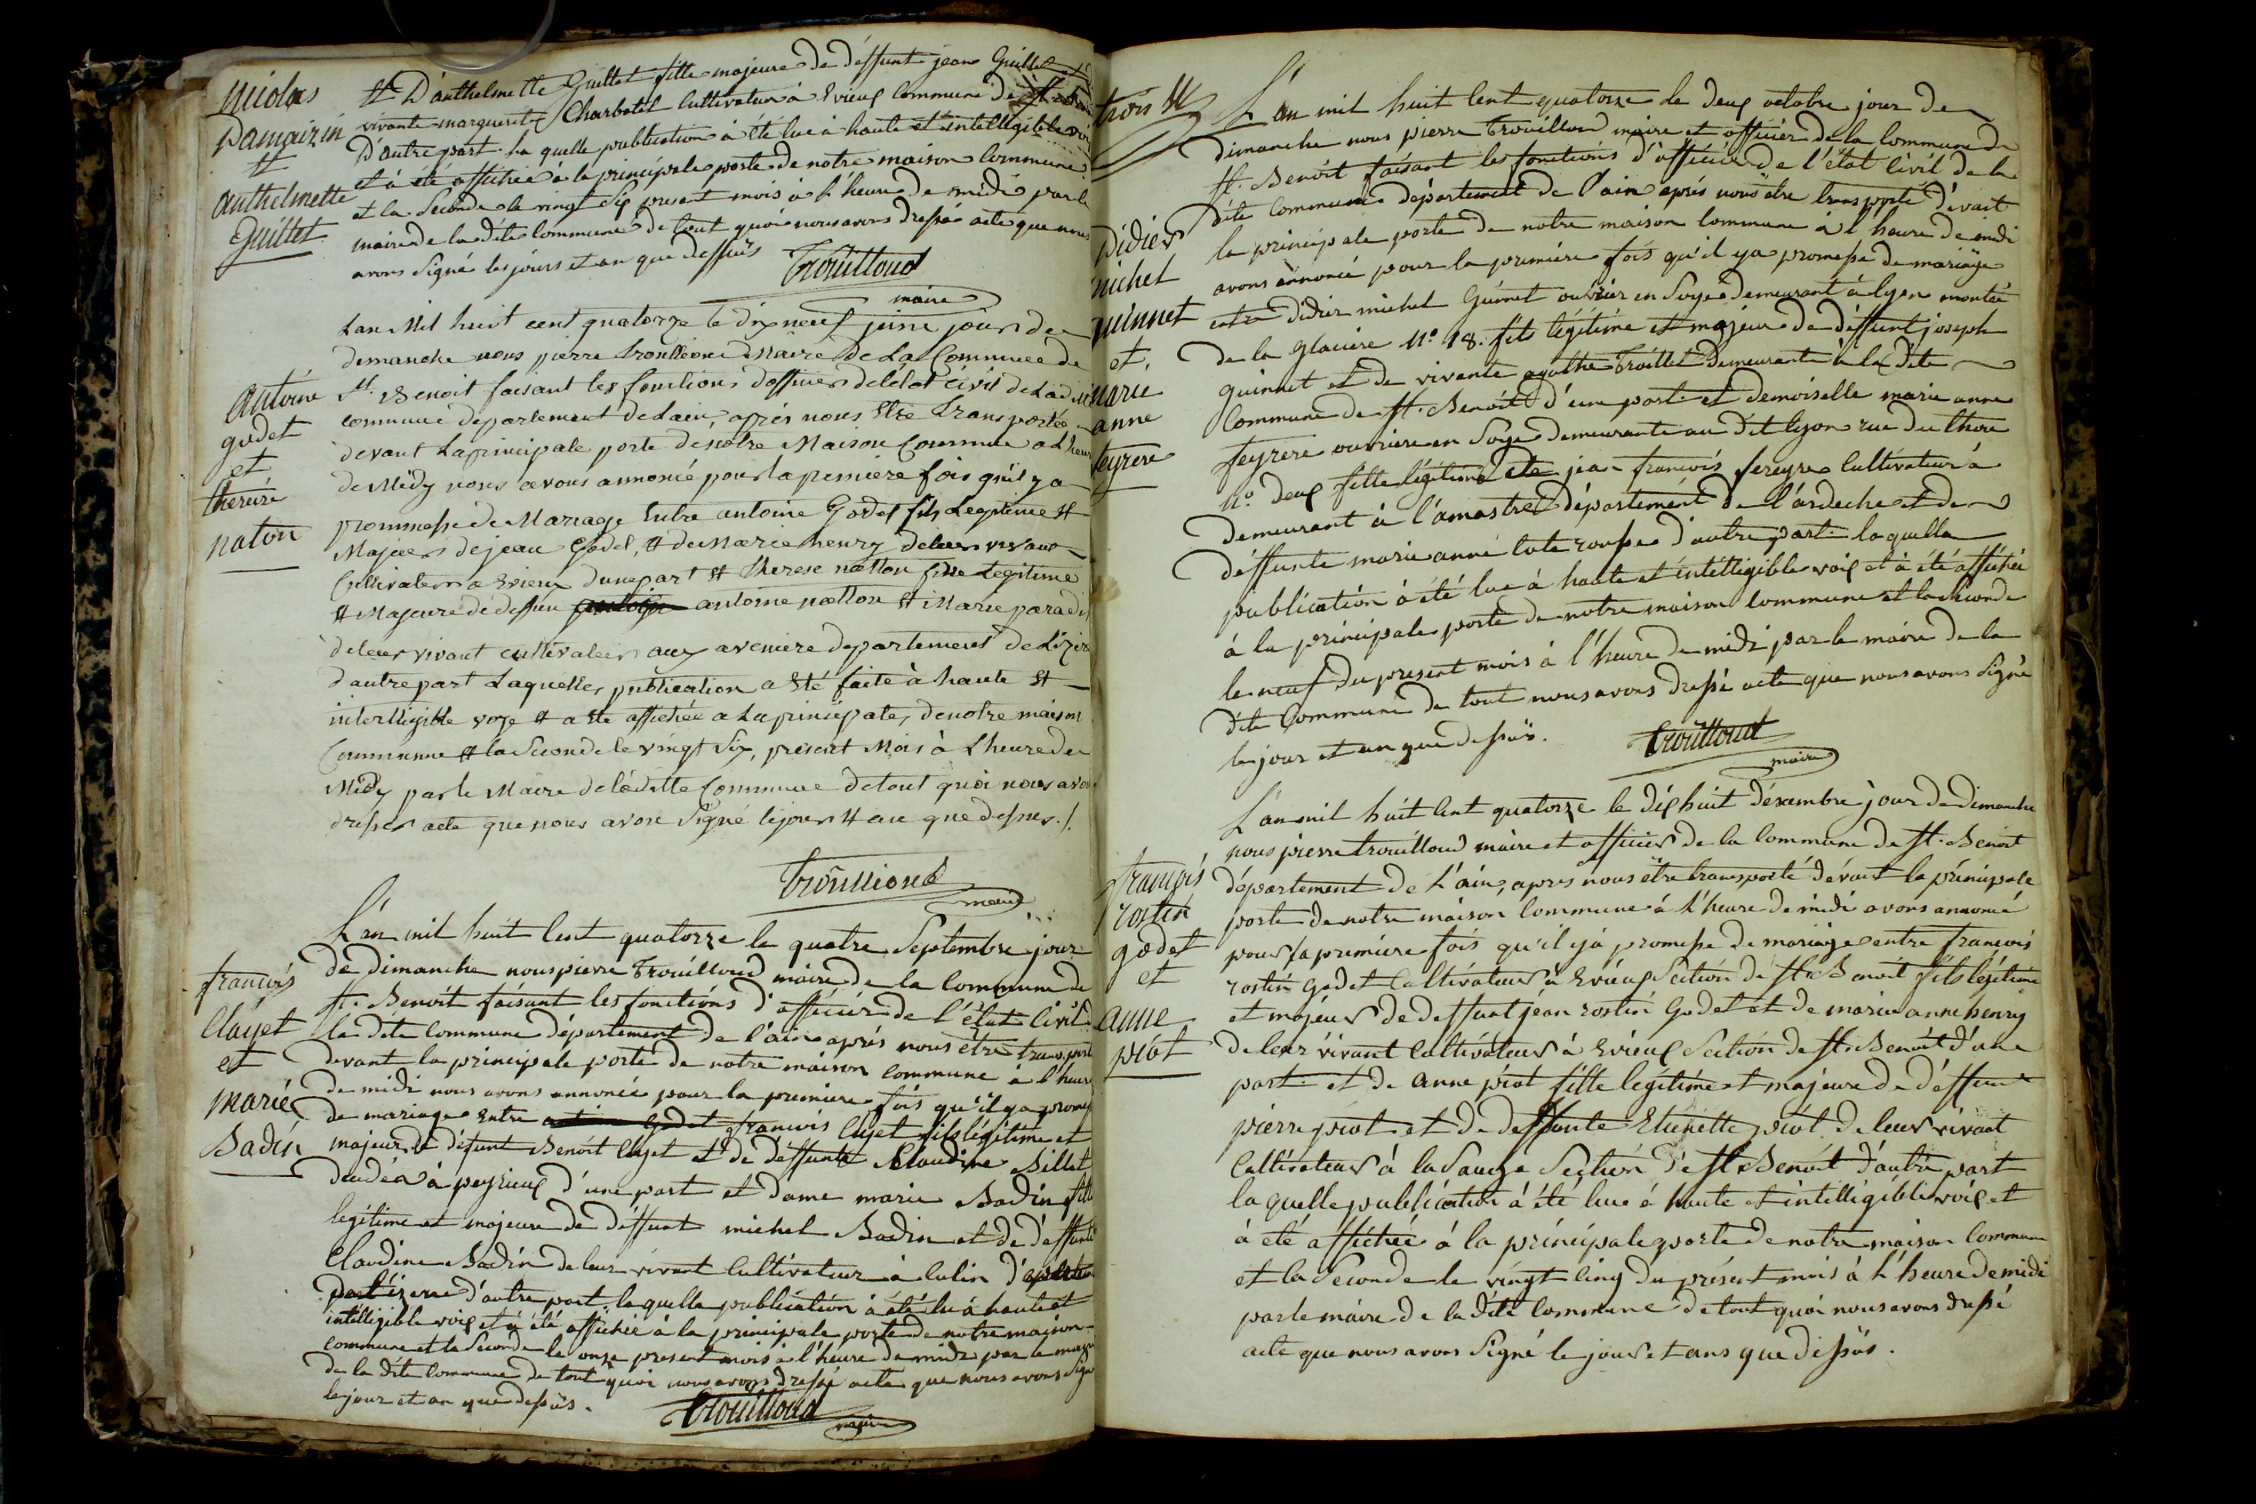 Nicolas
Pamairin
et
anthelmette
Guillet
et D'anthelmette Guillet fille majeure de deffunt jean Guillet et de
vivante marguerite Charbotel Cultivateur à Evieux Commune de St Benoit
D'autre part. la quelle publication à été lue à haute et intelligible voix
et à été affichée à la principale porte de notre maison Commune
et la Seconde le vingt Six present mois à l'heure de midi par le
maire de la dite Commune de tout quoi nous avons dressé acte que nous
avons Signé les jours et an que dessus
Trouilloud
maire
antoine
godet
et
therese
naton
Lan Mil huit cent quatorze le dix neuf juin jour de
demanche nous pierre trouilloud Maire de La Commune de
St. Benoit faisant les fonctions dofficier deletat civis de La dite
commune departement de Lain, aprés nous Etre transportée
devant La principale porte de notre Maison Commune a Lheure
de Midy nous avons annoncé pour la permiere fois quil y a
prommesse de Mariage Entre antoine Godet fils Legitime et
Majeur de jean Godet, et de Marie henry de leur vivant
Cultivateur a Evieux dune part et Therese natton fille Legitime
et Majeure de deffeu antoine natton et Marie paradis
de leur vivant cultivateur aux aveniere departement de Lizere
dautre part Laquelle publication a Eté faite à haute et
intelligible voye et a ete affichée a La principale, de notre maison
Commune et la Seconde le vingt Six, present Mois à Lheure de
Midy par le Maire de la ditte Commune de tout quoi nous avons
dresser acte que nous avons Signé le jour et an que dessus./.
Trouilloud
maire
francois
Clayet
et
marie
Badin
L'an mil huit Cent quatorze le quatre Septembre jour
de dimanche nous pierre Trouilloud maire de la Commune de
St. Benoit faisant les fonctions d'officier de l'état Civil
la dite Commune département de l'ain aprés nous être transporté
devant la principale porte de notre maison Commune à l'heure
de midi nous avons annoncée pour la premiere fois qu'il ya promesse
de mariage Entre antoine Godet francois Clayet fils légitime et
majeur de défunt Benoit Clayet et de deffunte Claudine Billet
à peyrieux d'une part et dame marie Badin fille
legitime et majeure de deffunt michel Badin et de deffunte
Claudine Badin de leur vivant Cultivateur à Culin département
de l'izerre d'autre part laquelle publication à été lu à haute et
intelligible voix et à été affichée à la principale porte de notre maison
commune et la Seconde le onze present mois à l'heure de midi par le maire
de la dite Commune de tout quoi nous avons dressé acte que nous avons Signé
le jour et an que dessus.
Trouilloud
maire
trois
Didier
michel
quinnet
et
marie
anne
feyrere
L'an mil huit Cent quatorze le deux octobre jour de
dimanche nous pierre trouilloud maire et officier de la commune de
St. Benoit faisant les fonctions d'officier de l'état Civil de la
dite Commune département de l'ain aprés nous être transporté dévant
la principale porte de notre maison Commune à l'heure de midi
avons annoncé pour la premiere fois qu'il ya promesse de mariage
entre didier michel Guinet ouvrier en Soye demeurant à lyon montée
de la glaciere N°. 18. fils légitime et majeur de deffunt joseph
quinnet et de vivante agathe Troillet demeurante à la dite
Commune de St. Benoit d'une part. et demoiselle marie anne
feyrere ouvriere en Soye demeurante au dit lyon rue du
N°. deux fille légitime de jean francois fereyre Cultivateur à
demeurant à l'amastre département de l'ardeche et de
deffunte marie anne d'autre part. laquelle
publication à été lue à haute et intelligible voix et à été affichée
à la principale porte de notre maison Commune et la Seconde
le neuf du present mois à l'heure de midi par le maire de la
dite Commune de tout nous avons dressé acte que nous avons Signé
le jour et an que dessus.
Trouilloud
maire
françois
rostin
godet
et
anne
piot
L'an mil huit Cent quatorze le dix huit déxembre jour de dimanche
nous pierre trouilloud maire et officier de la Commune de St. Benoit
département de L'ain, aprés nous être transporté dévant la principale
porte de notre maison Commune à L'heure de midi avons annoncé
pour la premiere fois qu'il yà promesse de mariage entre francois
rostin godet Cultivateur à Evieux Section de St Benoit fils légitime
et majeur de deffunt jéan rostin Godet et de marie anne henry
de leur vivant Cultivateur à Evieux Section de St Benoit d'une
part. et de anne piot fille legitime et majeure de d'effunt
pierre piot et de deffunte Etienette piot de leur vivant
Cultivateur à la Sauge Section de St Benoit d'autre part
la quelle publication à été lue à haute et intelligible voix et
à été affichée à la principale porte de notre maison Commune
et la Seconde le vingt Cinq du présent mois à L'heure de midi
par le maire de la dite Commune de tout quoi nous avons dressé
acte que nous avons Signé le jour et ans que dessus.